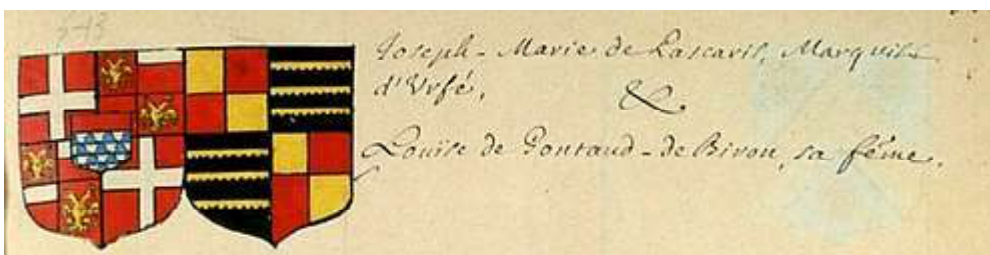 Joseph-Marie de Lascaris, Marquis
d'Urfé,
&
Louise de Gontaud-de Biron, sa féme.